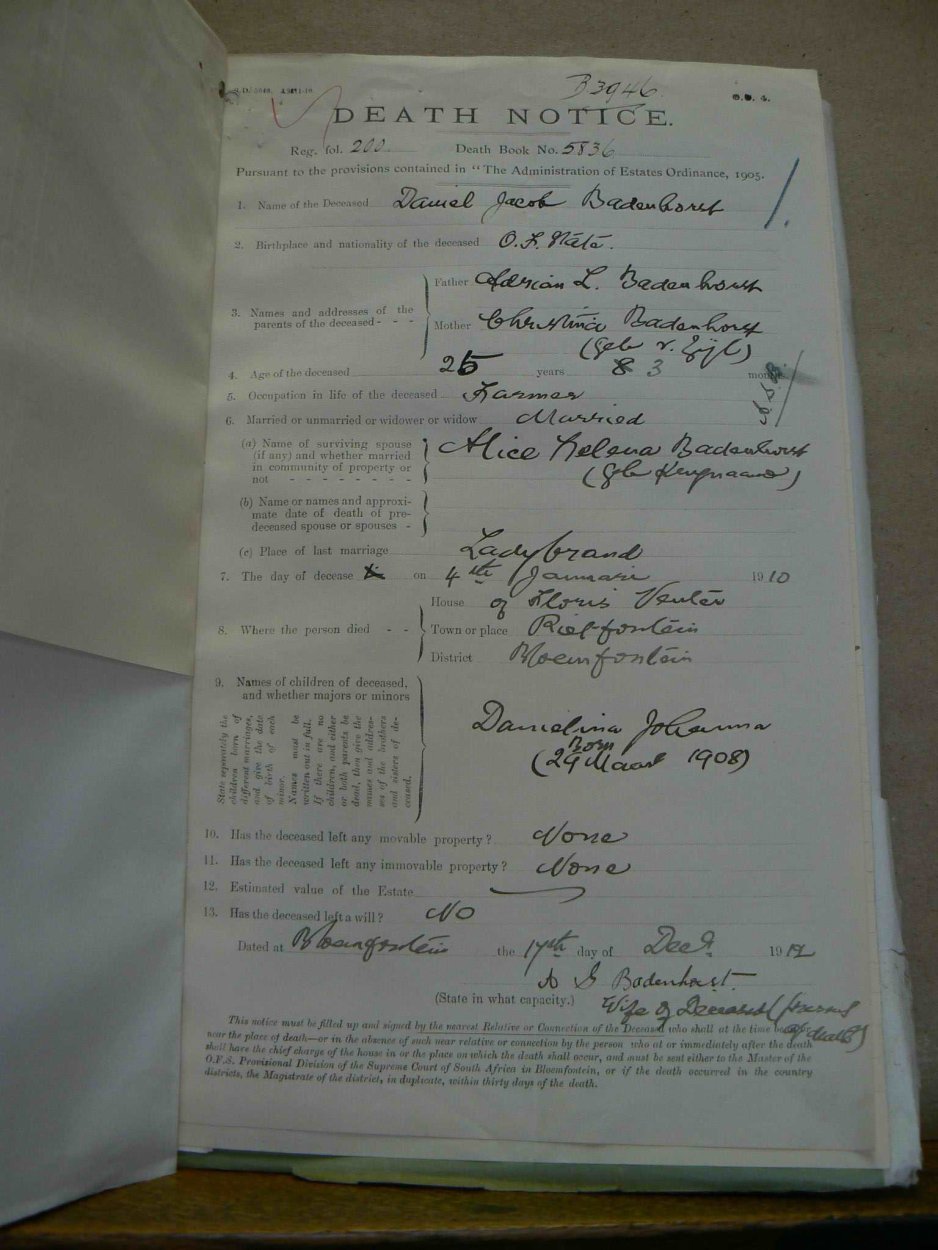 B3946
DEATH NOTICE.
Reg. fol. 200 Death Book No. 5836
Pursuant to the provisions contained in "The Administration of Estates Ordinance, 1905.
1. Name of the Deceased Daniel Jacob Badenhorst
2. Birthplace and nationality of the deceased O. F. State.
3. Names and addresses of the parents of the deceased - - -
Father Adrian L. Badenhorst
Mother Christina Badenhorst
(geb v. Zijl)
4. Age of the deceased 25 years 3 months
5. Occupation in life of the deceased Farmer
6. Married or unmarried or widower or widow Married
(a) Name of surviving spouse
(if any) and whether married
in community of property or
not - - - - - - - -
Alice Helena Badenhorst
(geb
(b) Name or names and approxi-
mate date of death of pre-
deceased spouse or spouses -
(c) Place of last marriage Ladybrand
7. The day of decease on 4th Januari 1910
8. Where the person died - -
House of Floris Venter
Town or place Rietfontein
District Bloemfontein
9. Names of children of deceased,
and whether majors or minors
State separately the
children born of
different marriages,
and give the date
of birth of each
minor.
Names must be
written out in full.
If there are no
children, and either
or both parents be
dead, then give the
names and addres-
ses of the brothers
and sisters of de-
ceased.
Danielina Johanna
Born
(29 Maart 1908)
10. Has the deceased left any movable property? None
11. Has the deceased left any immovable property? None
12. Estimated value of the Estate
13. Has the deceased left a will? No
Dated at Bloemfontein the 17th day of Decr. 1912
A S Badenhorst.
(State in what capacity.) Wife of Deceased (
of death)
This notice must be filled up and signed by the nearest Relative or Connection of the Deceased who shall at the time be at or
near the place of death—or in the absence of such near relative or connection by the person who at or immediately after the death
shall have the chief charge of the house in or the place on which the death shall occur, and must be sent either to the Master of the
O.F.S. Provisional Division of the Supreme Court of South Africa in Bloemfontein, or if the death occurred in the country
districts, the Magistrate of the district, in duplicate, within thirty days of the death.